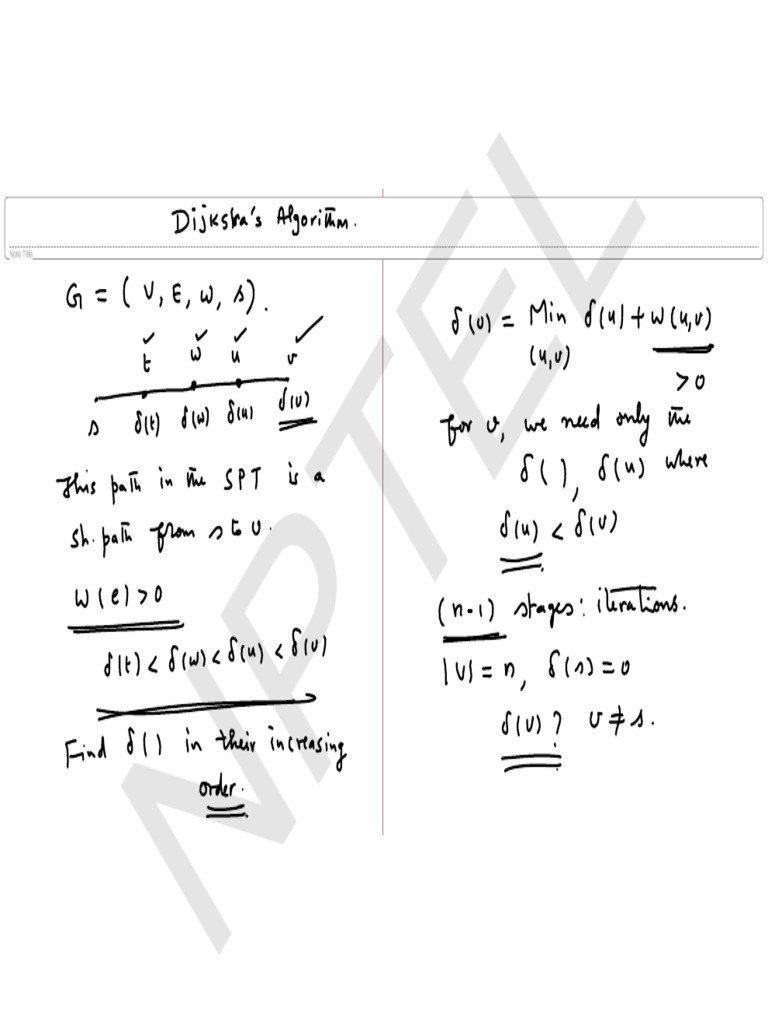 Dijkstra's Algorithm.
Note Title
G = ( V, E, w, s ).
t w u v
s δ(t) δ(w) δ(u) δ(v)
This path in the SPT is a
sh. path from s to v.
w(e) > 0
δ(t) < δ(w) < δ(u) < δ(v)
Find δ() in their increasing
order.
δ(v) = Min δ(u) + w(u,v)
(u,v)
> 0
for v, we need only the
δ( ), δ(u) where
δ(u) < δ(v)
(n-1) stages: iterations.
|V| = n, δ(s) = 0
δ(v) ? v ≠ s.
NPTEL